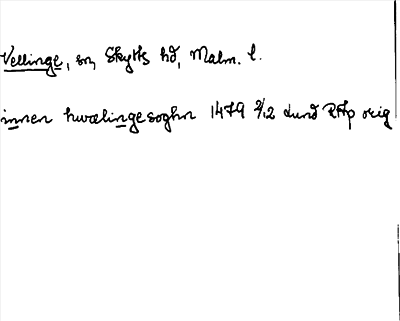 Vellinge, sn, Skytts hd, Malm. l.
innen hwælingesoghn 1479 2/12 Lund RAp orig